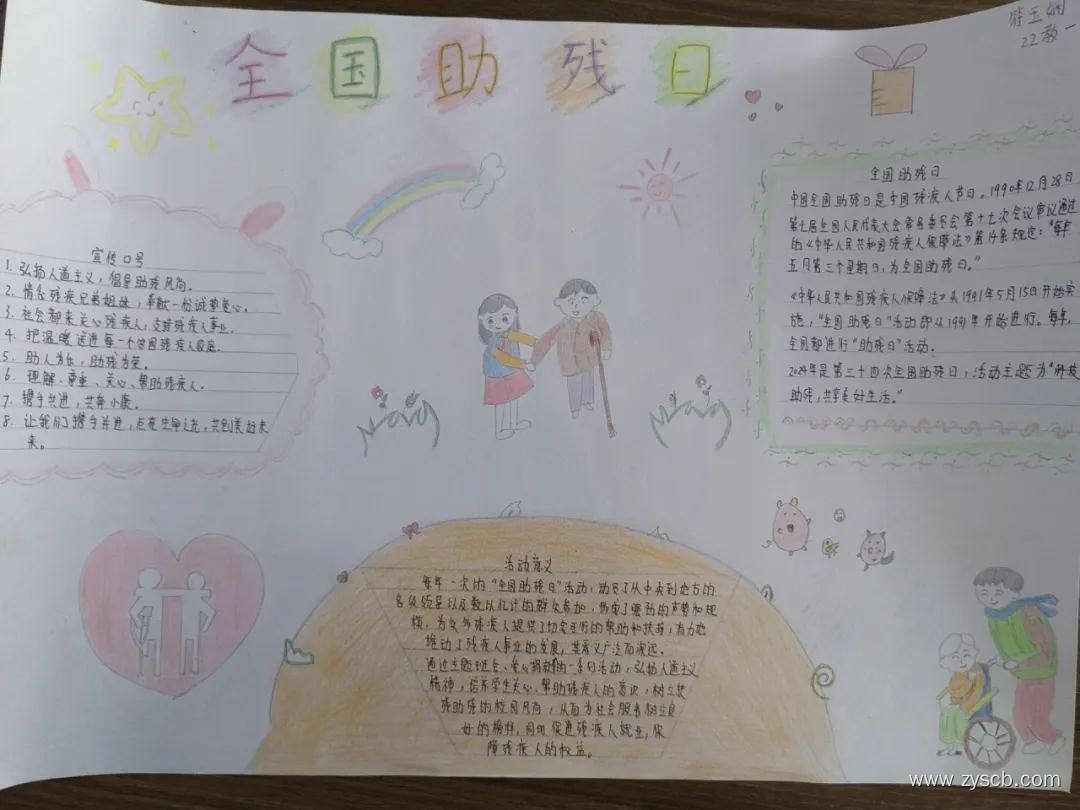 全国助残日
22教一
宣传口号
1. 弘扬人道主义，倡导助残风尚。
2. 情系残疾兄弟姐妹，奉献一份诚挚爱心。
3. 社会都来关心残疾人，支持残疾人事业。
4. 把温暖送进每一个贫困残疾人家庭。
5. 助人为乐，助残为荣。
6. 理解、尊重、关心、帮助残疾人。
7. 携手共进，共奔小康。
8. 让我们携手并进，点亮生命之光，共创美好未
来。
全国助残日
中国全国助残日是全国残疾人节日。1990年12月28日
第七届全国人民代表大会常务委员会第十七次会议审议通过
的《中华人民共和国残疾人保障法》第14条规定："每年
五月第三个星期日，为全国助残日。"
《中华人民共和国残疾人保障法》从1991年5月15日开始实
施，"全国助残日"活动即从1991年开始进行。每年，
全国都进行"助残日"活动。
2024年是第三十四次全国助残日，活动主题为"科技
助残，共享美好生活。"
活动意义
每年一次的"全国助残日"活动，动员了从中央到地方的
各级领导以及数以亿计的群众参加，形成了强劲的声势和规
模，为众多残疾人提供了切实可行的帮助和扶持，有力地
推动了残疾人事业的发展，其意义广泛而深远。
通过主题班会、爱心捐款的一系列活动，弘扬人道主义
精神，培养学生关心、帮助残疾人的意识，树立扶
残助残的校园风尚，从而为社会服务树立良
好的榜样，同时促进残疾人就业，保
障残疾人的权益。
www.zyscb.com